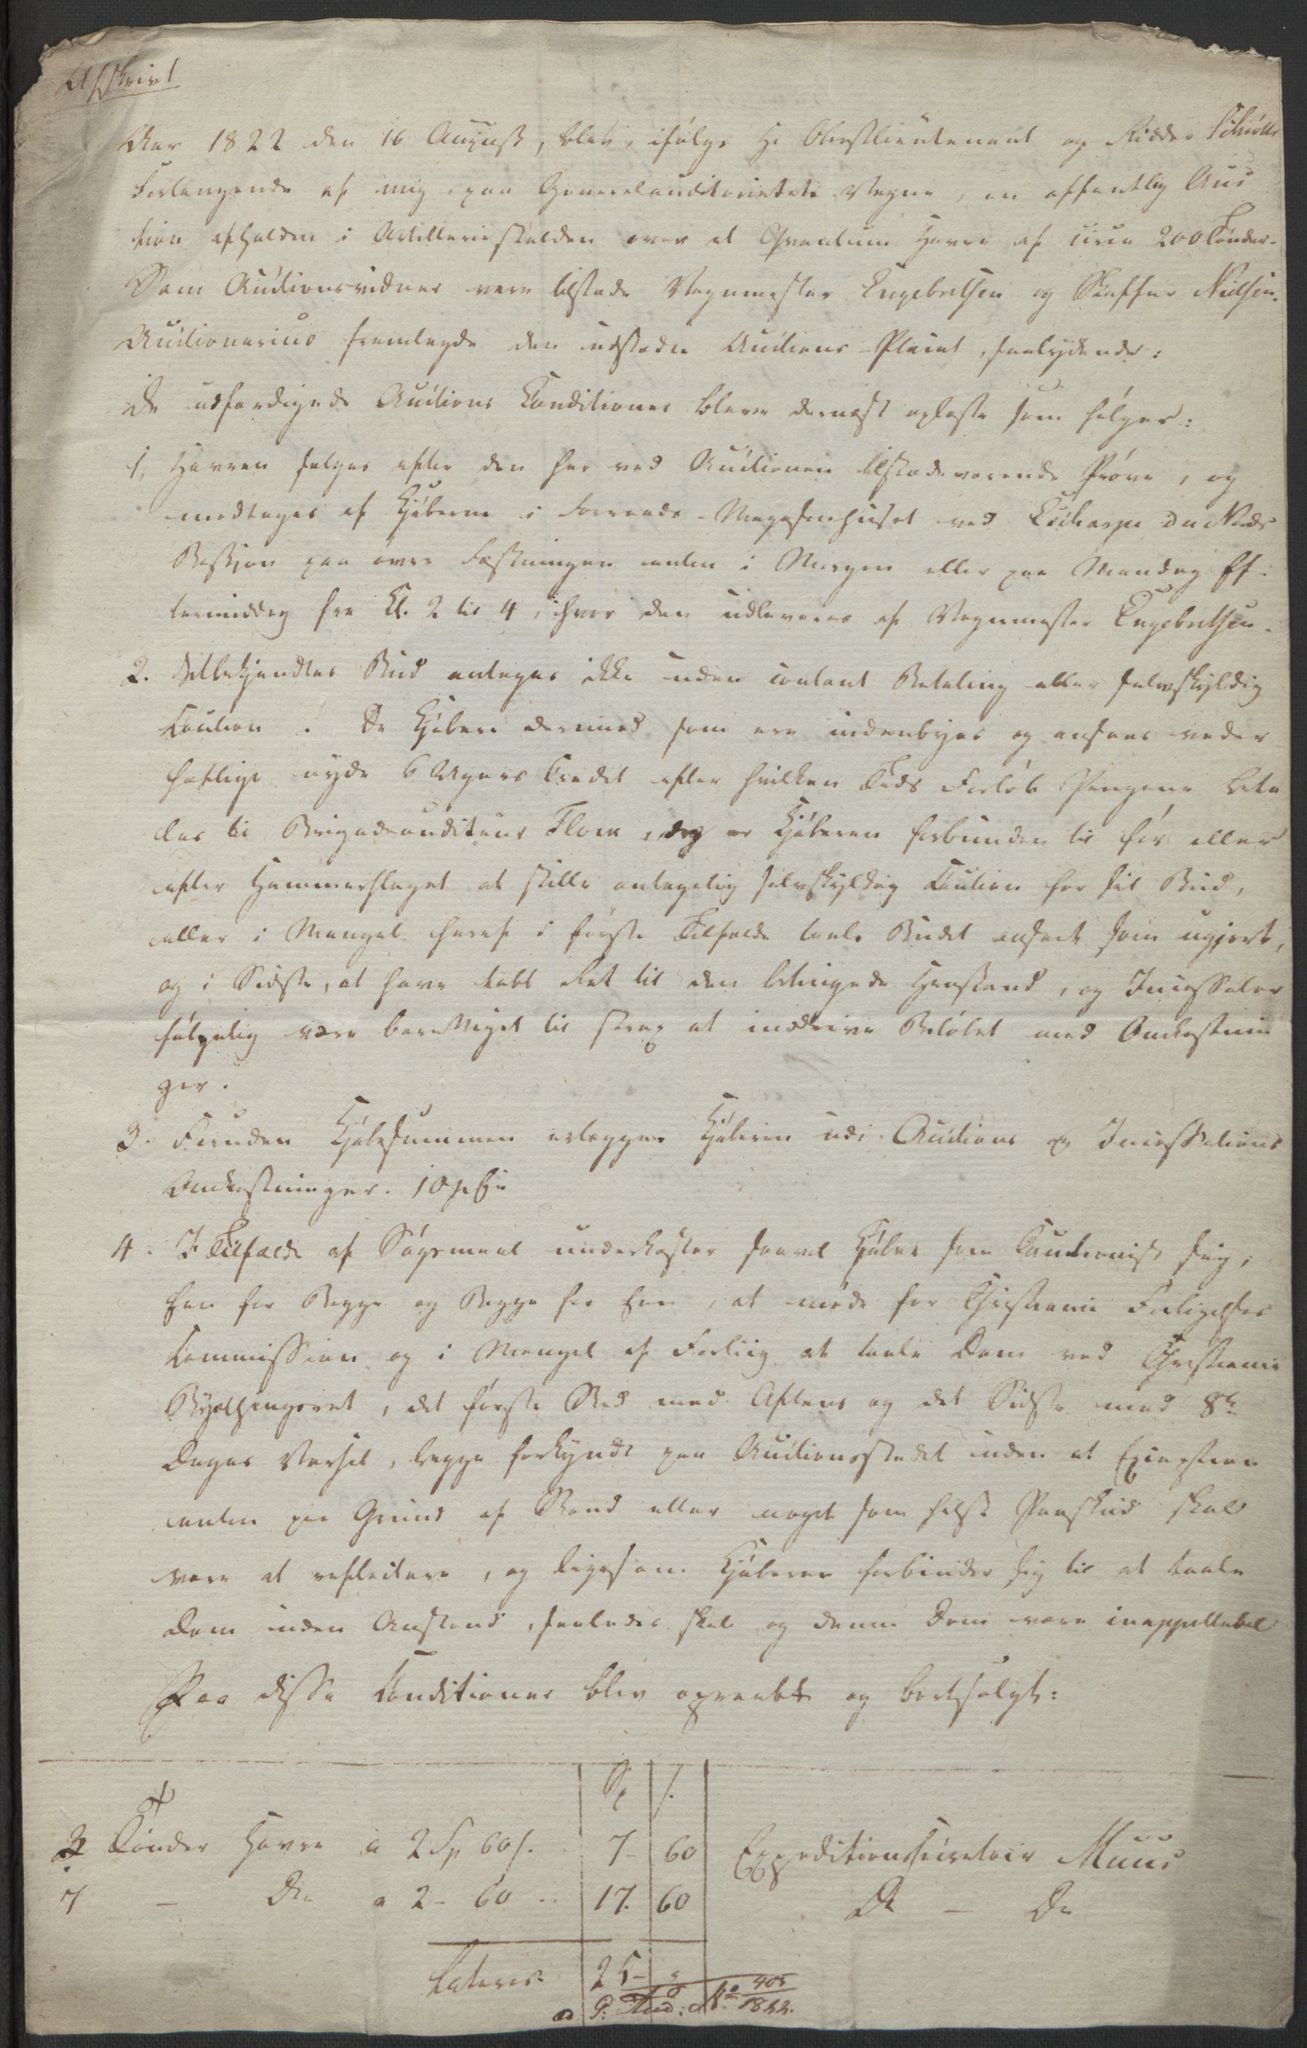 Afskrivt
Aar 1822 den 16 August, blev, ifølge Hr Oberstlieutenant og Ridder
Forlangende af mig paa Generalauditorietets Vegne, en offentlig Auc
tion afholden i Artilleriestalden over et Qvantum Havre af circa 200 Tønder.
Som Auctionsvidner vare tilstæde Vognmester Engebretsen og Skaffer Nielsen.
Auctionarius fremlagde den udstædte Auctions-Placat, saalydende:
De udfærdigede Auctions Conditioner bleve dernæst oplæste som følger:
1, Havren sælges efter den her ved Auctionen tilstædeværende Prøve, og
modtages af Kjøberne i Forraads-Magasinhuset ved
Bastion paa øvre Fæstningen enten i Morgen eller paa Mandag Ef-
termiddag fra Kl. 2 til 4, hvor den udleveres af Vognmester Engebretsen.
2. Ubekjendtes Bud antages ikke uden contant Betaling eller selvskyldig
Caution. De Kjøbere derimod som ere indenbyes og ansees veder
hæftige nyde 6 Ugers Credit efter hvilken Tids Forløb Pengene beta
les til Brigadeauditeur Flor, dog er Kjøberen forbunden til før eller
efter Hammerslaget at stille antagelig selvskyldig Caution for sit Bud,
eller i Mangel heraf i første Tilfælde taale Budet anseet som ugjort,
og i Sidste, at have tabt Ret til den betingede Henstand, og Incassator
følgelig være berettiget til strax at inddrive Beløbet med Omkostnin
ger.
3. Foruden Kjøbesummen erlægger Kjøberen udi Auctions og Incassations
Omkostninger. 10 pCto
4. I Tilfælde af Søgsmaal underkaster saavel Kjøber som Cautionist sig,
Een for Begge og Begge for Een, at møde for Christiania Forligelses
Commission og i Mangel af Forliig at taale Dom ved Christiania
Byethingsret, det første Sted med Aftens og det Sidste med 8te
Dages Varsel, begge forkyndt paa Auctionsstedet uden at Exception
enten paa Grund af Stand eller noget som helst Paaskud skal
være at reflectere, og ligesom Kjøberen forbinder sig til at taale
Dom uden Anstand, saaledes skal og denne Dom være inappellabel
Paa disse Conditioner blev opraabt og bortsolgt:
Sp | s.
3 Tønder Havre a 2 Sp 60 s. 7- 60 Expeditionssecretair Muus
7 — Do a 2 - 60 - 17. 60 Do — Do
Lateris 25 - "
ad G: Aud: No 405/1822.